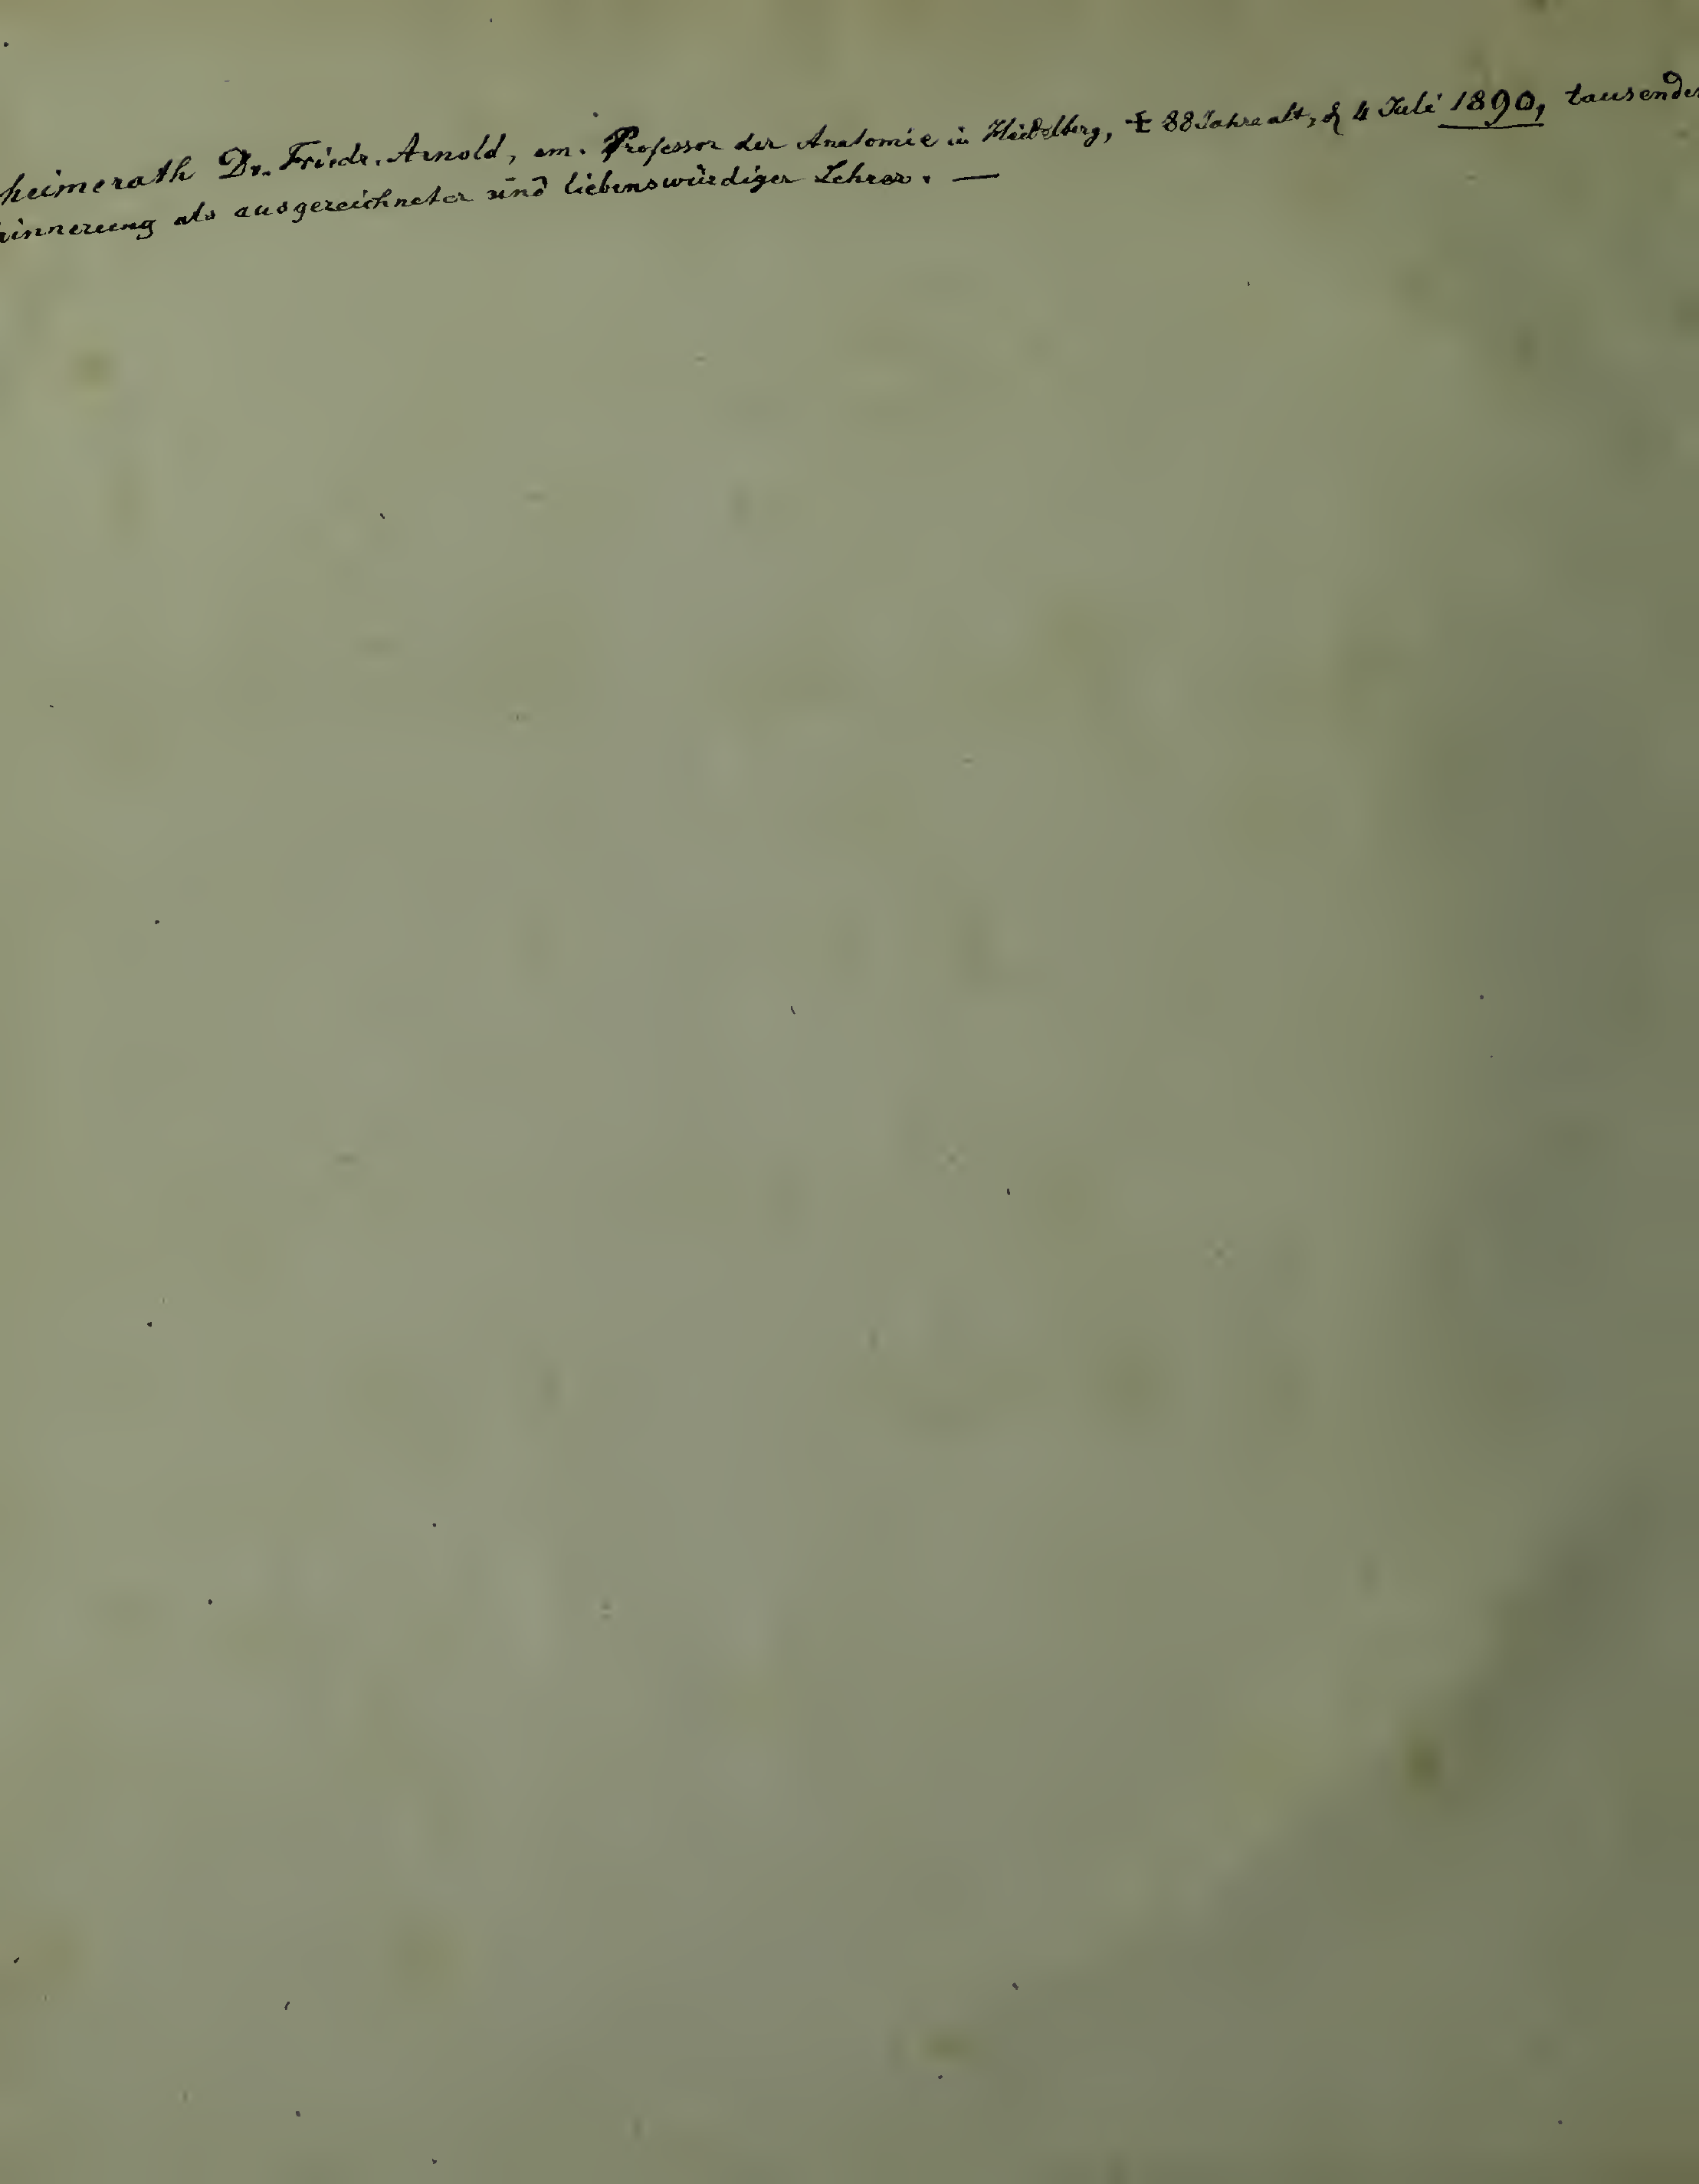 heimerath Dr. Friedr. Arnold, em. Professor der Anatomie in Heidelberg, † 88 Jahre alt, d 4 Juli 1890, tausende
rinnerung als ausgezeichneter und liebenswürdiger Lehrer. —